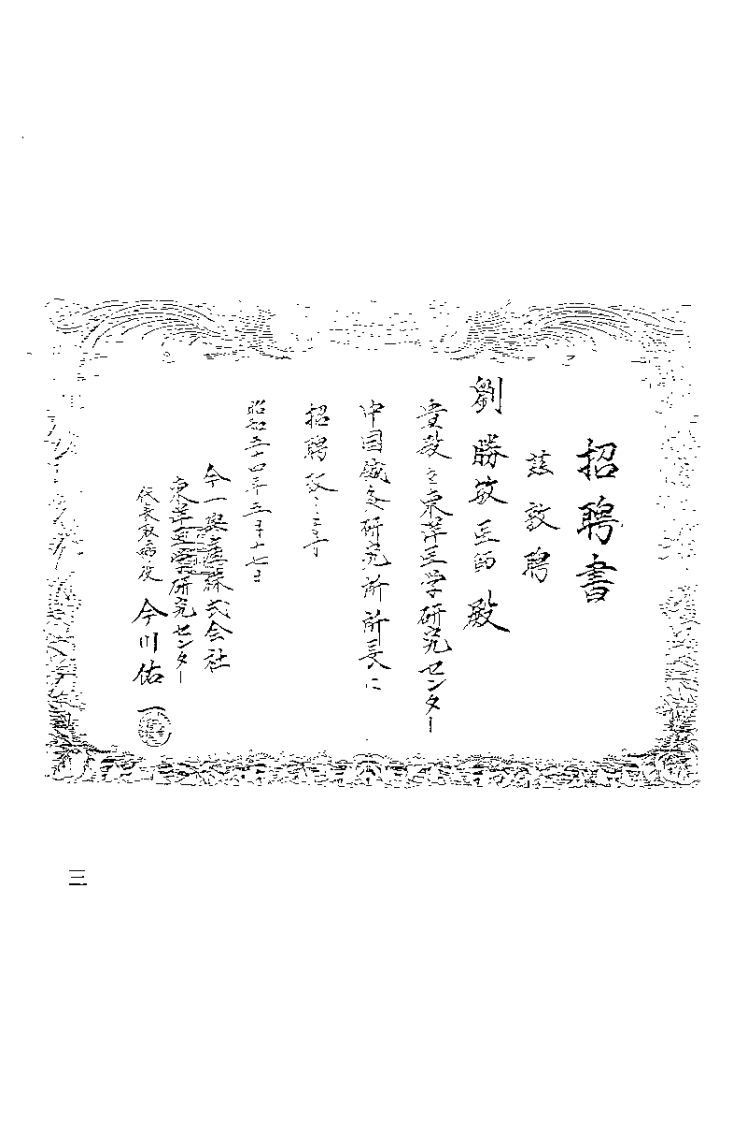 招聘書
茲敦聘
劉勝敏医師殿
貴殿を東洋医学研究センター
中国鍼灸研究所所長に
招聘致します
昭和五十四年五月十七日
今一興産株式会社
東洋医学研究センター
代表取締役 今川佑一
三